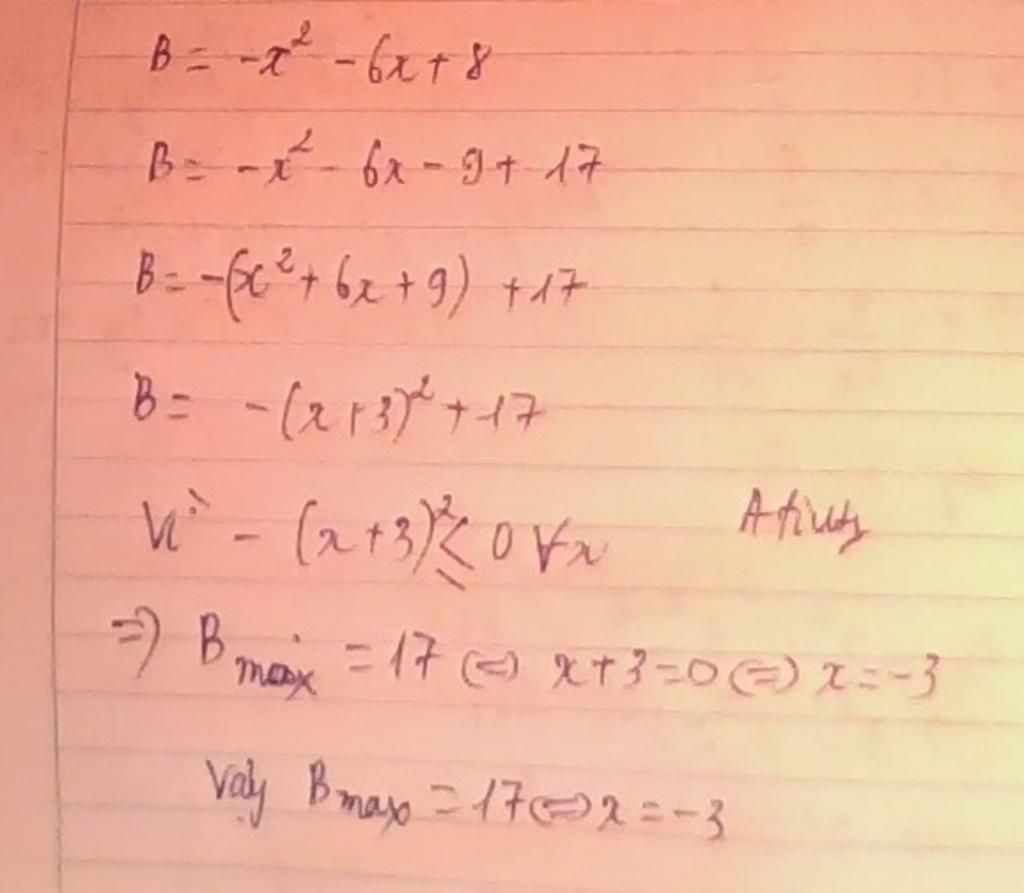 B = -x² - 6x + 8
B = -x² - 6x - 9 + 17
B = -(x² + 6x + 9) + 17
B = -(x+3)² + 17
Vì - (x+3)² ≤ 0 ∀x
=> B max = 17 <=> x+3=0 <=> x=-3
Vậy B max = 17 <=> x = -3